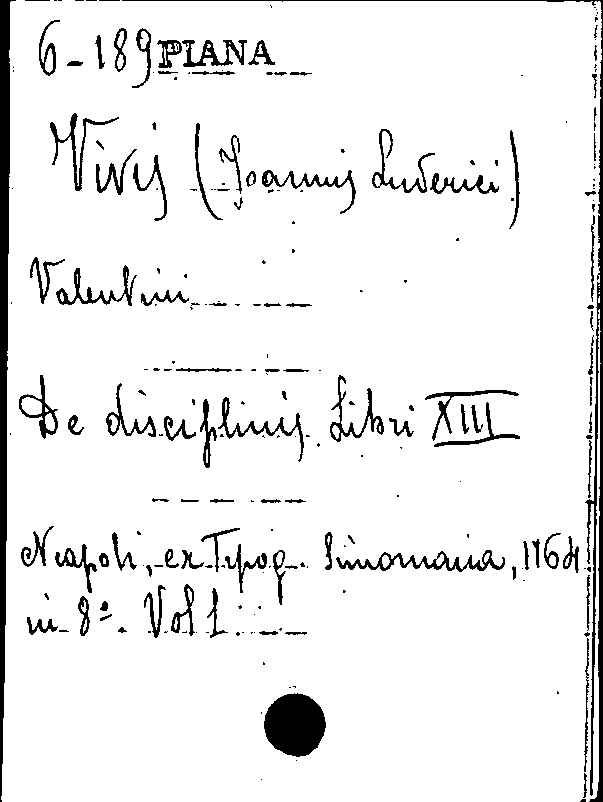 6-189 PIANA
Vivis (Joannis Luderici)
Valentini
De disciplinis Libri XIII
Neapoli, ex Typog. Simoniana, 1764
in 8º. Vol 1